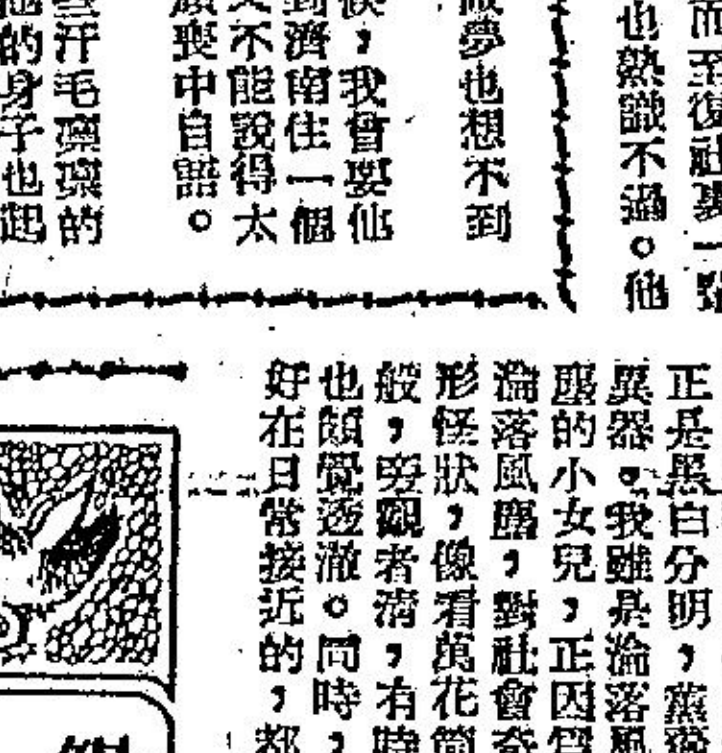 而至復社裏一
也熟識不過。他
做夢也想不到
快,我會要他
到濟南住一個
又不能說得太
頹喪中自語。
些汗毛凜凜的
他的身子也起
正是黑白分明,薰
異器。我雖是淪落風
塵的小女兒,正因爲
淪落風塵,對社會奇
形怪狀,像看萬花筒
般,旁觀者清,有時
也頗覺透澈。同時,
好在日常接近的,都